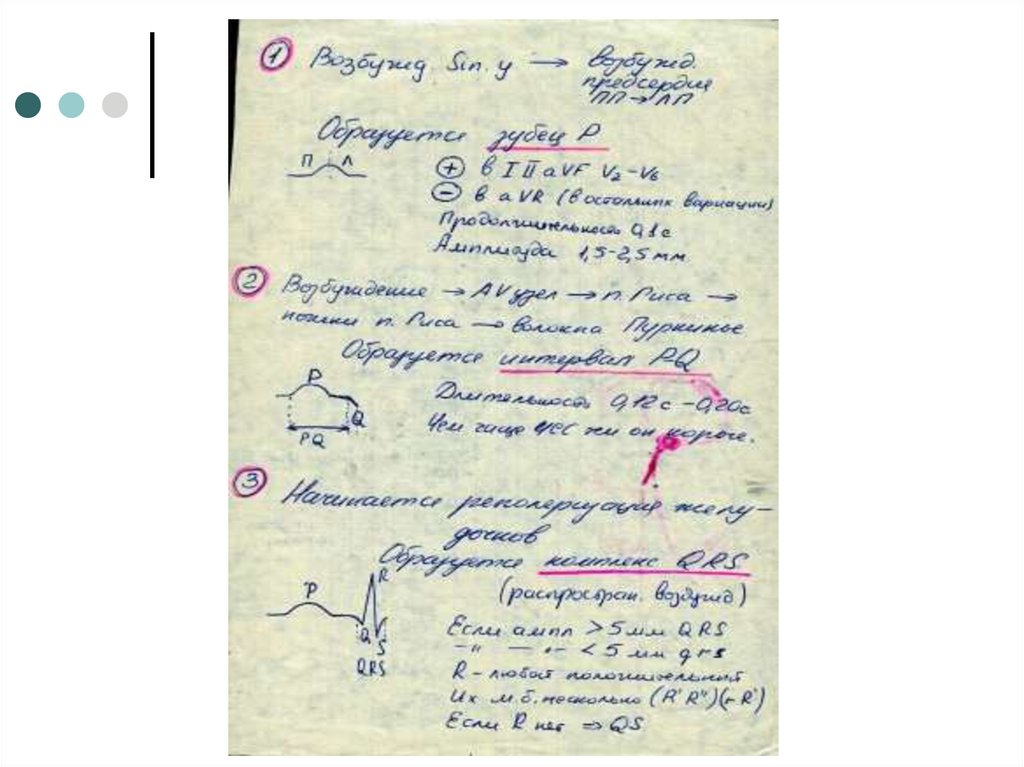 1 Возбужд. Sin. у → возбужд.
предсердие
ПП → ЛП
Образуется зубец P
П Л
+ в I II aVF V2-V6
− в aVR (в остальных вариации)
Продолжительность 0,1с
Амплитуда 1,5-2,5 мм
2 Возбуждение → AV узел → п. Гиса →
ножки п. Гиса → волокна Пуркинье
Образуется интервал PQ
P
Q
PQ
Длительность 0,12с - 0,20с
Чем чаще ЧСС он короче.
3 Начинается реполяризация желу-
дочков
Образуется комплекс QRS
(распростран. возбужд)
P
R
Q
S
QRS
Если ампл > 5 мм QRS
-"- -"- < 5 мм qrs
R - любой положительный
Их м.б. несколько (R' R'') (r R')
Если R нет ⇒ QS